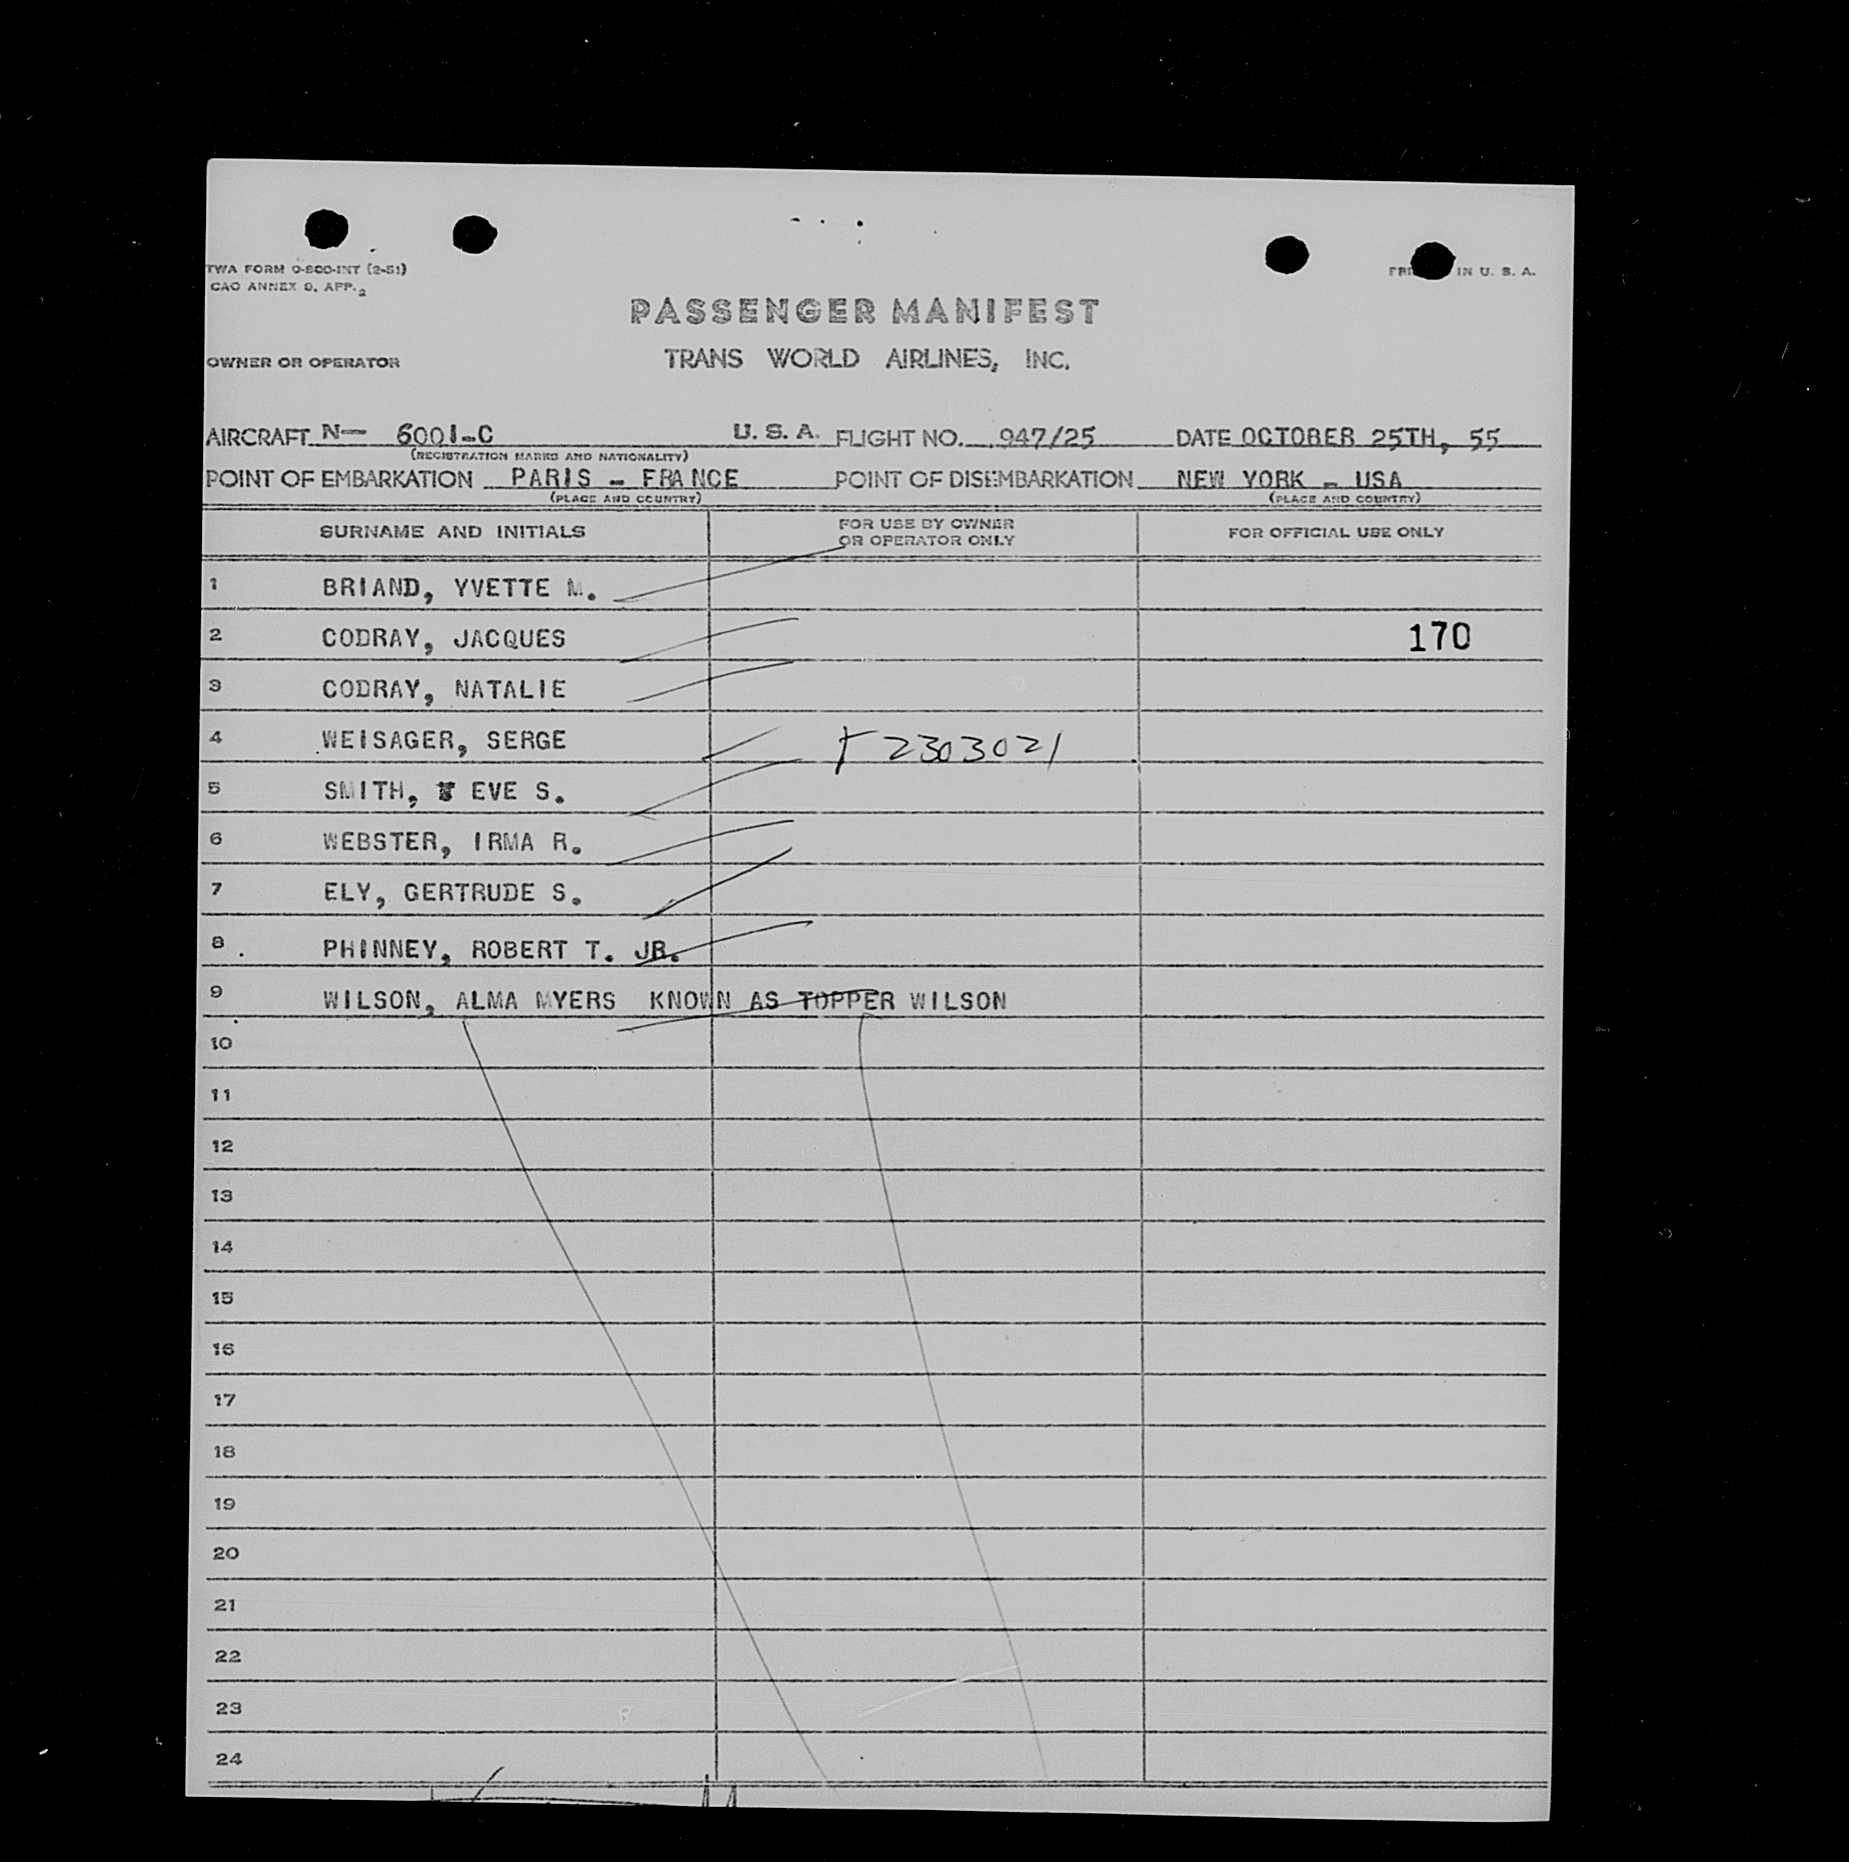 TWA FORM O-800-INT (2-51)
CAO ANNEX 9, APP. 2
IN U. S. A.
PASSENGER MANIFEST
OWNER OR OPERATOR TRANS WORLD AIRLINES, INC.
AIRCRAFT N— 6001-C U. S. A. FLIGHT NO. 947/25 DATE OCTOBER 25TH, 55
(REGISTRATION MARKS AND NATIONALITY)
POINT OF EMBARKATION PARIS - FRANCE POINT OF DISEMBARKATION NEW YORK - USA
(PLACE AND COUNTRY) (PLACE AND COUNTRY)
SURNAME AND INITIALS FOR USE BY OWNER OR OPERATOR ONLY FOR OFFICIAL USE ONLY
1 BRIAND, YVETTE M.
2 CODRAY, JACQUES 170
3 CODRAY, NATALIE
4 WEISAGER, SERGE 2303021
5 SMITH, EVE S.
6 WEBSTER, IRMA R.
7 ELY, GERTRUDE S.
8 PHINNEY, ROBERT T. JR.
9 WILSON, ALMA MYERS KNOWN AS TOPPER WILSON
10
11
12
13
14
15
16
17
18
19
20
21
22
23
24